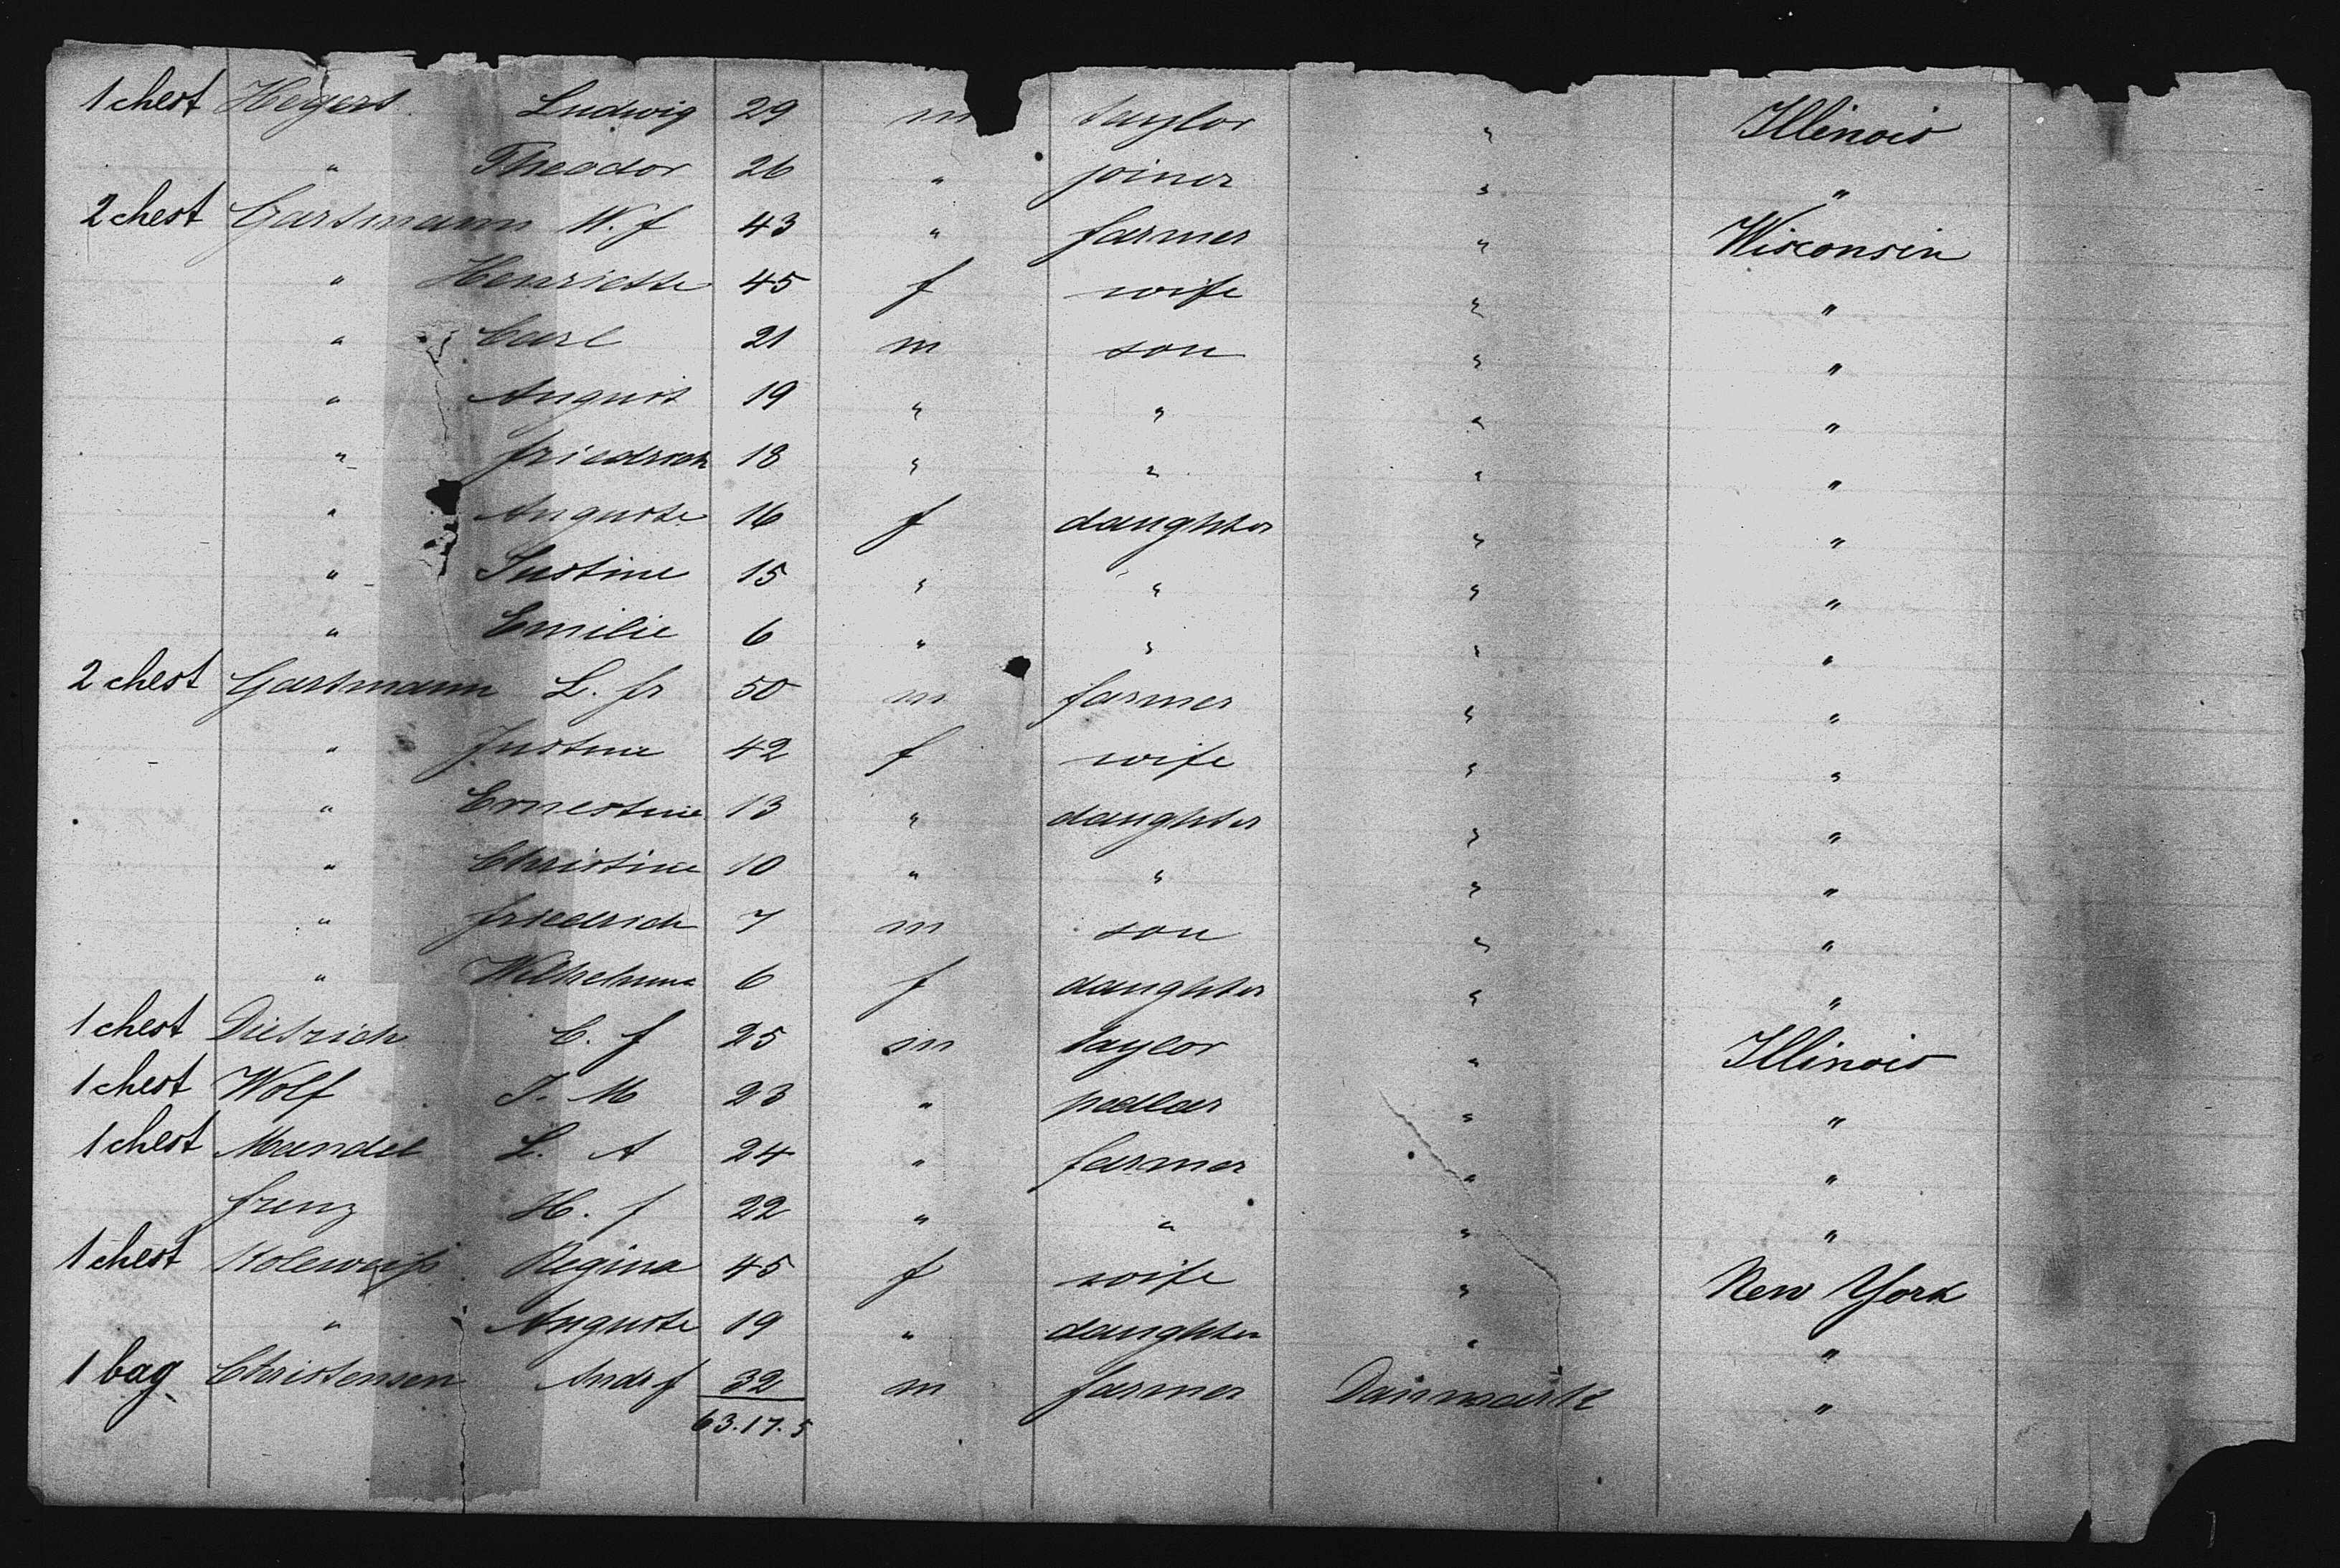 1 chest Hegers Ludwig 29 m taylor " Illinois
" Theodor 26 " joiner " "
2 chest Gartmann W. f 43 " farmer " Wisconsin
" Henriette 45 f wife " "
" Carl 21 m son " "
" August 19 " " " "
" friedrich 18 " " " "
" Auguste 16 f daughter " "
" Justine 15 " " " "
" Emilie 6 " " " "
2 chest Gartmann L. fr 50 m farmer " "
" Justine 42 f wife " "
" Ernestine 13 " daughter " "
" Christine 10 " " " "
" friedrich 7 m son " "
" Wilhelmine 6 f daughter " "
1 chest Dietrich C. f 25 m taylor " Illinois
1 chest Wolf J. M 23 " pedlar " "
1 chest Mandel L. A 24 " farmer " "
frenz H. f 22 " " " "
1 chest Regina 45 f wife " New York
" Auguste 19 " daughter " "
1 bag Christensen Andr f 32 m farmer Danmark "
63.17.5